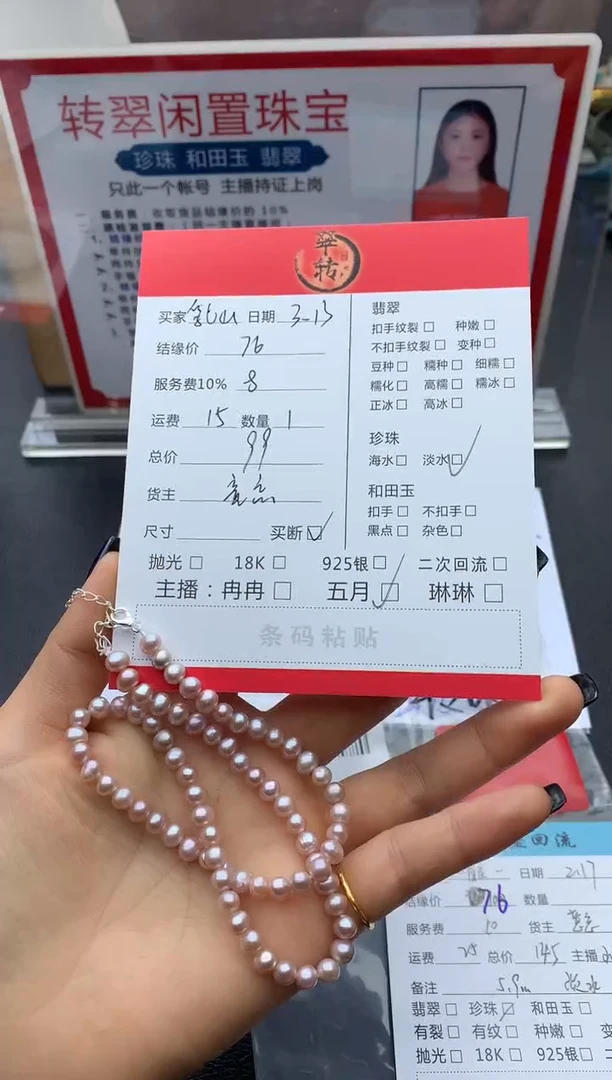 转翠闲置珠宝
珍珠 和田玉 翡翠
只此一个帐号 主播持证上岗
翠转
买家 日期 3-13
结缘价 76
服务费10% 8
运费 15 数量 1
总价 99
货主
尺寸 买断☑
翡翠
扣手纹裂□ 种嫩□
不扣手纹裂□ 变种□
豆种□ 糯种□ 细糯□
糯化□ 高糯□ 糯冰□
正冰□ 高冰□
珍珠
海水□ 淡水☑
和田玉
扣手□ 不扣手□
黑点□ 杂色□
抛光□ 18K□ 925银□ 二次回流□
主播：冉冉□ 五月☑ 琳琳□
条码粘贴
回流
日期 2.17
结缘价 76 数量
服务费 10 货主
运费 25 总价 145 主播
备注 5.9m 淡水
翡翠□ 珍珠☑ 和田玉□
有裂□ 有纹□ 种嫩□
抛光□ 18K□ 925银□